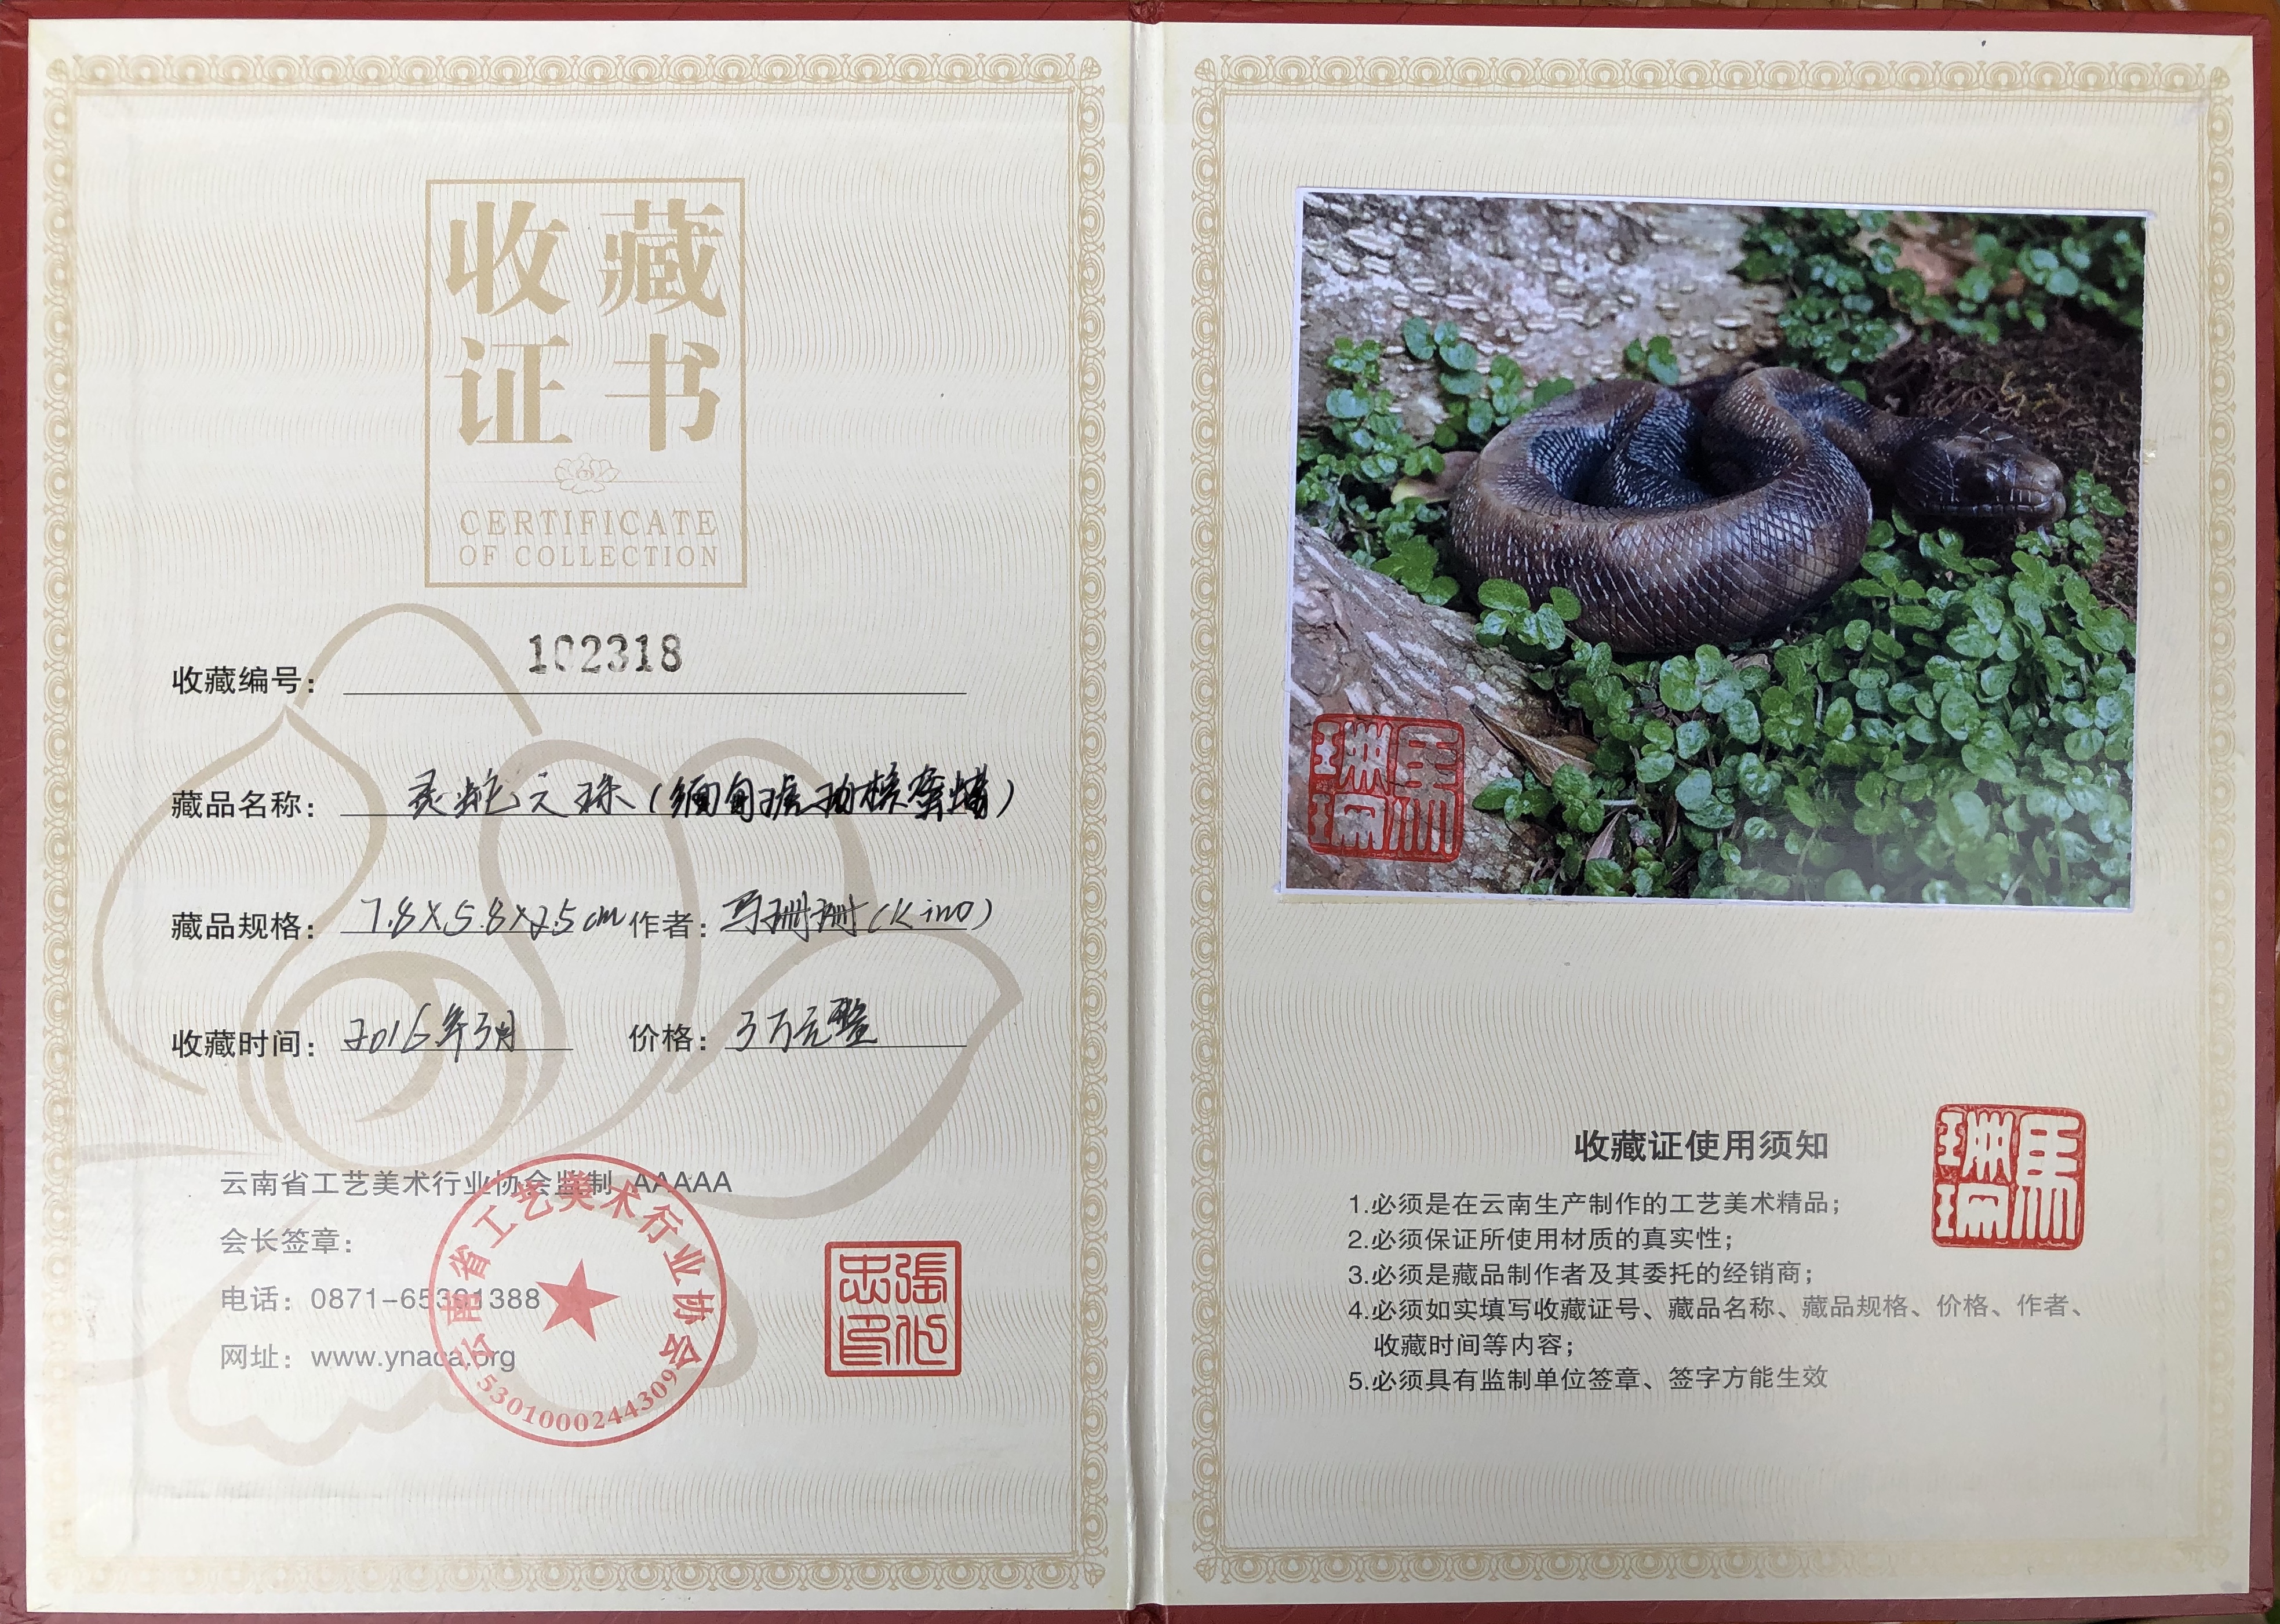 收藏
证书
CERTIFICATE
OF COLLECTION
收藏编号: 102318
藏品名称: 灵蛇元珠(缅甸琥珀棕蜜蜡)
藏品规格: 7.8×5.8×2.5cm 作者: 马珊珊(Kino)
收藏时间: 2016年3月 价格: 3万元整
云南省工艺美术行业协会监制 AAAAA
会长签章:
电话: 0871-65391388
网址: www.ynaca.org
云南省工艺美术行业协会
5301000244309
張仕
忠印
馬
珊珊
收藏证使用须知
1.必须是在云南生产制作的工艺美术精品;
2.必须保证所使用材质的真实性;
3.必须是藏品制作者及其委托的经销商;
4.必须如实填写收藏证号、藏品名称、藏品规格、价格、作者、
收藏时间等内容;
5.必须具有监制单位签章、签字方能生效
馬
珊珊